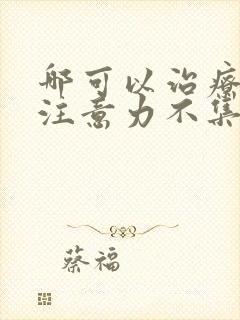 那可以治疗
注意力不集
蔡福